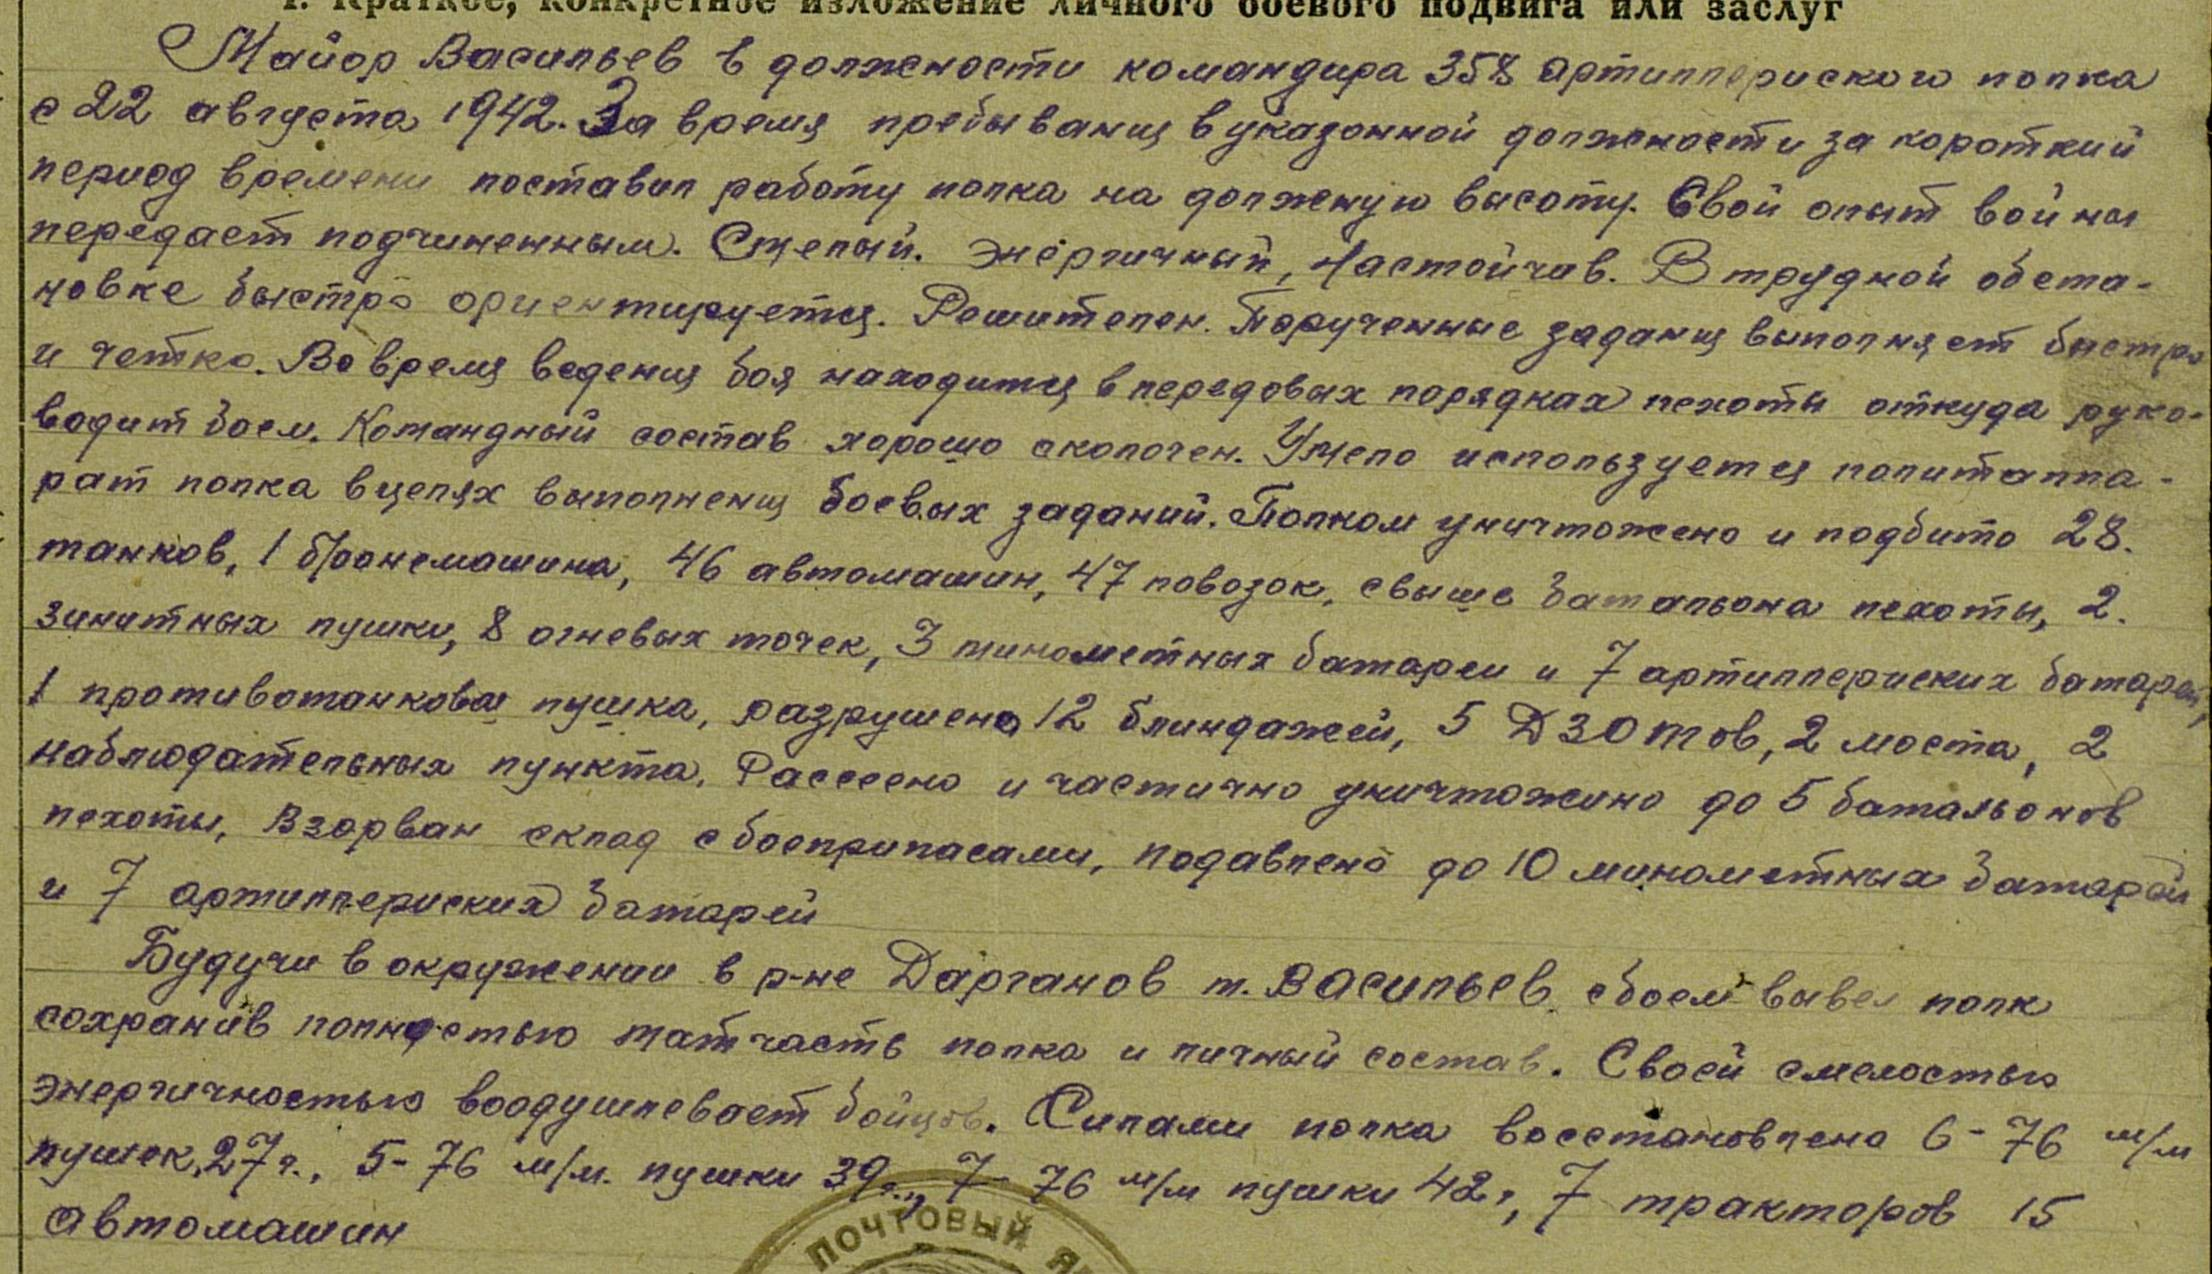 1. Краткое, конкретное изложение личного боевого подвига или заслуг
Майор Васильев в должности командира 358 артиллериского полка
с 22 августа 1942. За время пребывания в указонной должности за короткий
период времени поставил работу полка на должную высоту. Свой опыт войны
передает подчиненным. Смелый. Энергичный, Настойчив. В трудной обста-
новке быстро ориентируется. Решителен. Порученные задания выполняет быстро
и четко. Во время ведения боя находится в передовых порядках пехоты откуда руко-
водит боем. Командный состав хорошо сколочен. Умело используется политаппа-
рат полка в целях выполнения боевых заданий. Полком уничтожено и подбито 28.
танков, 1 бронемашина, 46 автомашин, 47 повозок, свыше батальона пехоты, 2.
зинитных пушки, 8 огневых точек, 3 минометных батареи и 7 артиллериских батарей,
1 противотанковая пушка, разрушено 12 блиндажей, 5 ДЗОТов, 2 моста, 2
наблюдательных пункта. Рассеено и частично уничтожино до 5 батальонов
пехоты, Взорван склад с боеприпасами, подавлено до 10 минометных батарей
и 7 артиллериских батарей
Будучи в окружении в р-не Дарганов т. Васильев с боем вывел полк
сохранив полностью матчасть полка и личный состав. Своей смелостью
энергичностью воодушлевает бойцов. Силами полка восстановлено 6-76 м/м
пушек, 27г., 5-76 м/м. пушки 39г., 7-76 м/м пушки 42г, 7 тракторов 15
автомашин
ПОЧТОВЫЙ